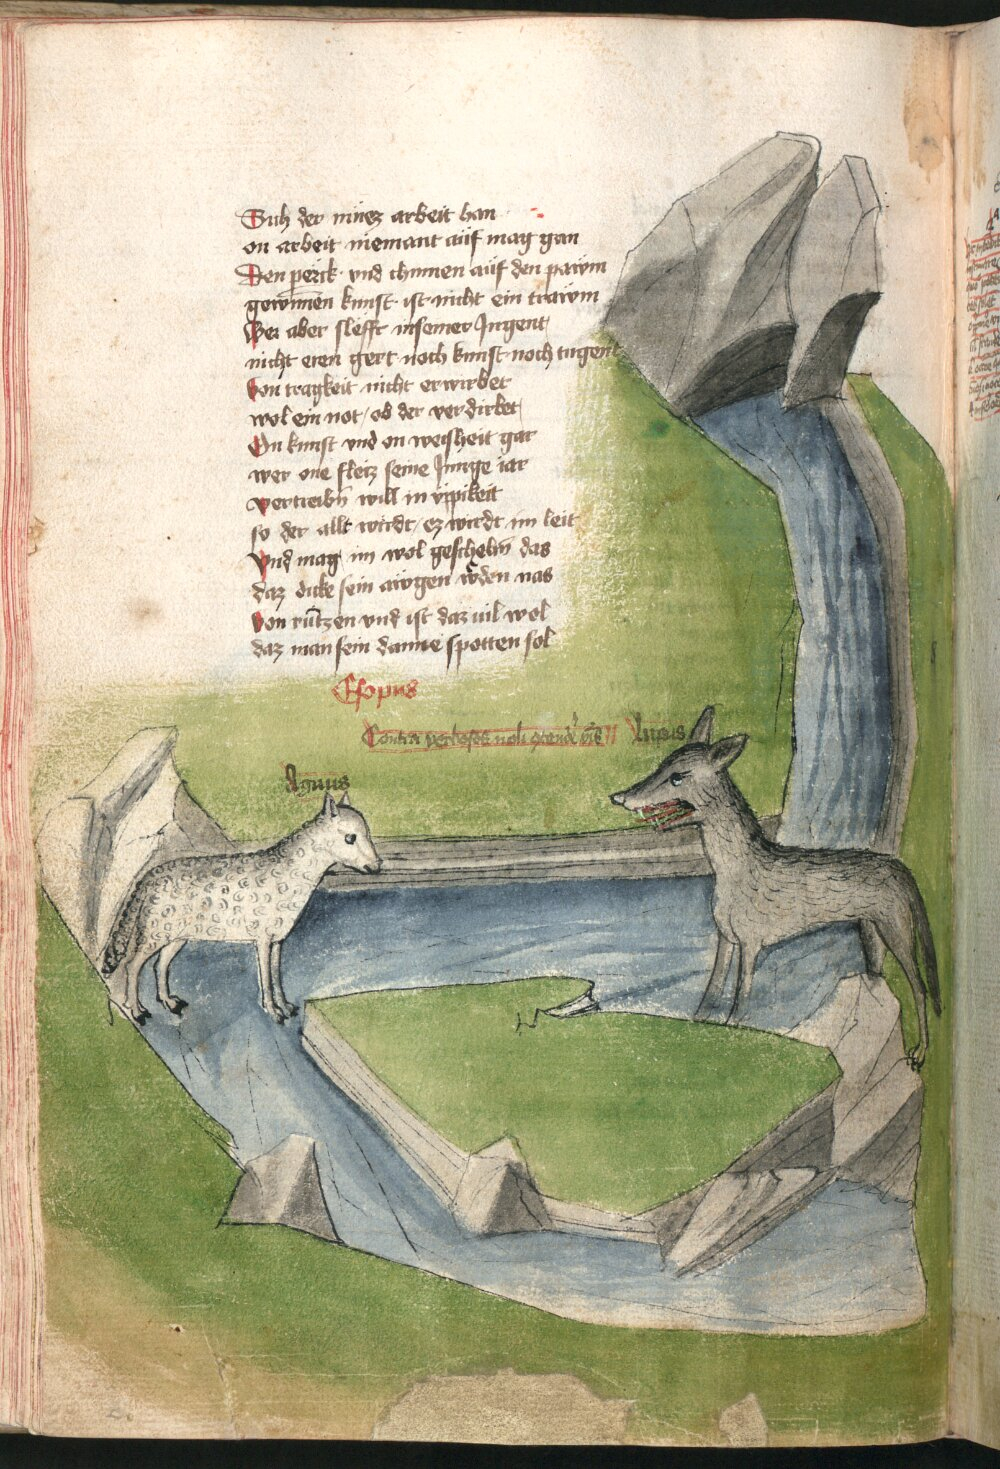 Such der mues arbeit han
on arbeit niemant auf mag gan
Den perck vnd chumen auf den pawm
gewinnen kunst ist nicht ein trawm
Wer aber slefft in seiner Jugent
nicht eren gert noch kunst noch tugent
Von tragkeit nicht erwirbet
wol ein not ob der verdirbet
On kunst vnd on weisheit gar
wer one fleiz seine Junge iar
vertreibn will in vppikeit
so der allt wirdt ez wirdt im leit
Vnd mag im wol geschehn das
daz dicke sein awgen werden nas
Von rutzen vnd ist daz vil wol
daz man sein danne spotten sol
Esopus
Contra noli Lupus
Agnus